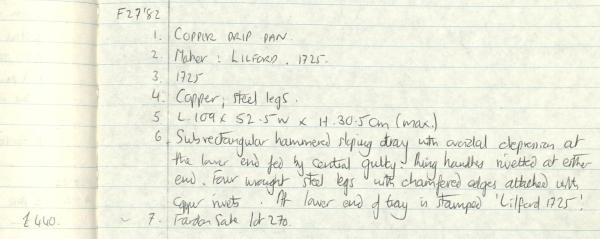 F27'82
1. COPPER DRIP PAN.
2. Maker: LILFORD. 1725.
3. 1725
4. Copper; steel legs.
5 L. 109 x 52.5 W x H. 30.5 cm (max.)
6. Subrectangular hammered sloping tray with ovoidal depression at
the lower end fed by central gully. Ring handles rivetted at either
end. Four wrought steel legs with chamfered edges attached with
copper rivets. At lower end of tray is stamped 'Lilford 1725'.
£440. ~ 7. Sale lot 270.